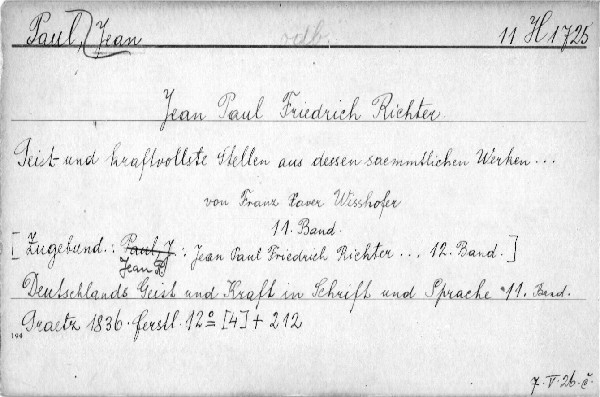 Paul, Jean odb. 11 H 1725
Jean Paul Friedrich Richter
Geist und kraftvollste Stellen aus dessen saemmtlichen Werken...
von Franz Xaver Wisshofer
11. Band.
[Zugebund.: Paul J.: Jean Paul Friedrich Richter... 12. Band.]
Jean P.
Deutschlands Geist und Kraft in Schrift und Sprache 11. Band.
Graetz 1836. Ferstl. 12° [4] + 212
194
7. V. 26. č.